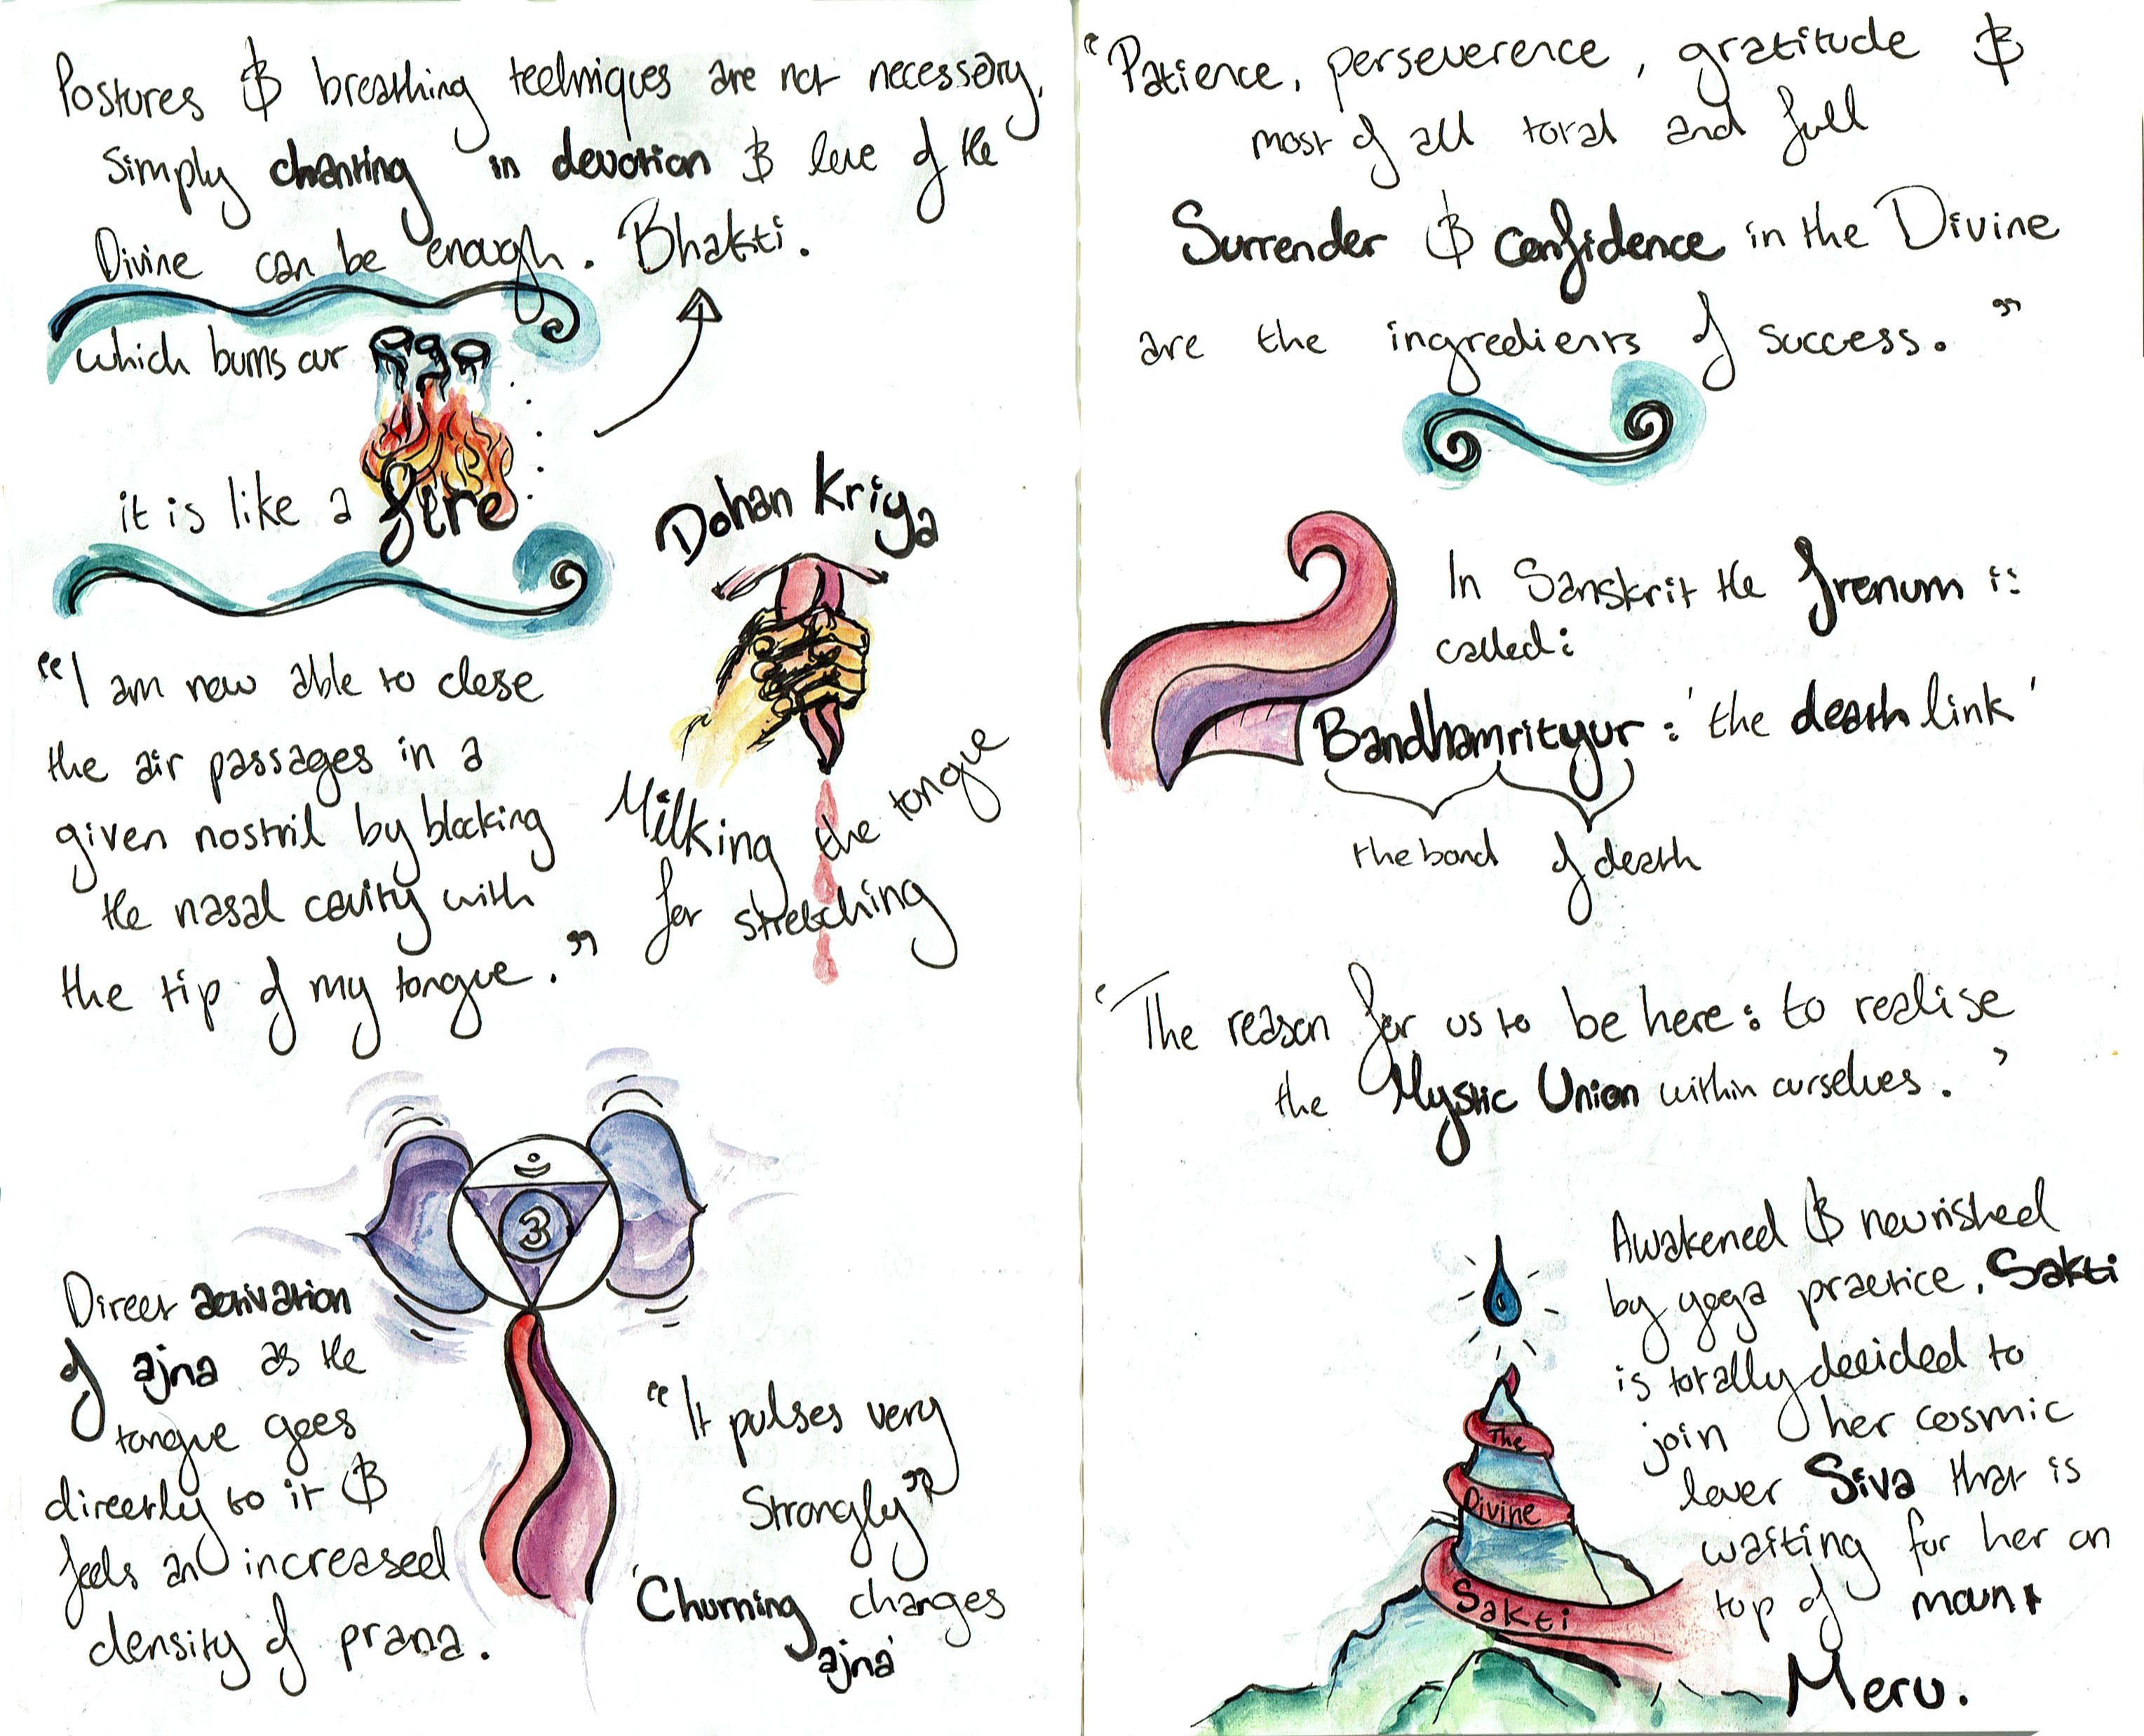 Postures & breathing techniques are not necessary,
simply chanting in devotion & love of the
Divine can be enough. Bhakti.
which burns our ego
it is like a fire
Dohan Kriya
Milking the tongue
for stretching
"I am now able to close
the air passages in a
given nostril by blocking
the nasal cavity with
the tip of my tongue."
ॐ
Direct activation
of ajna as the
tongue goes
directly to it &
feels an increased
density of prana.
"It pulses very
strongly"
'Churning changes
ajna'
"Patience, perseverence, gratitude &
most of all total and full
Surrender & confidence in the Divine
are the ingredients of success."
In Sanskrit the frenum is
called:
Bandhamrityur: 'the death link'
the bond of death
'The reason for us to be here: to realise
the Mystic Union within ourselves.'
Awakened & nourished
by yoga practice, Sakti
is totally decided to
join her cosmic
lover Siva that is
waiting for her on
top of mount
Meru.
The
Divine
Sakti